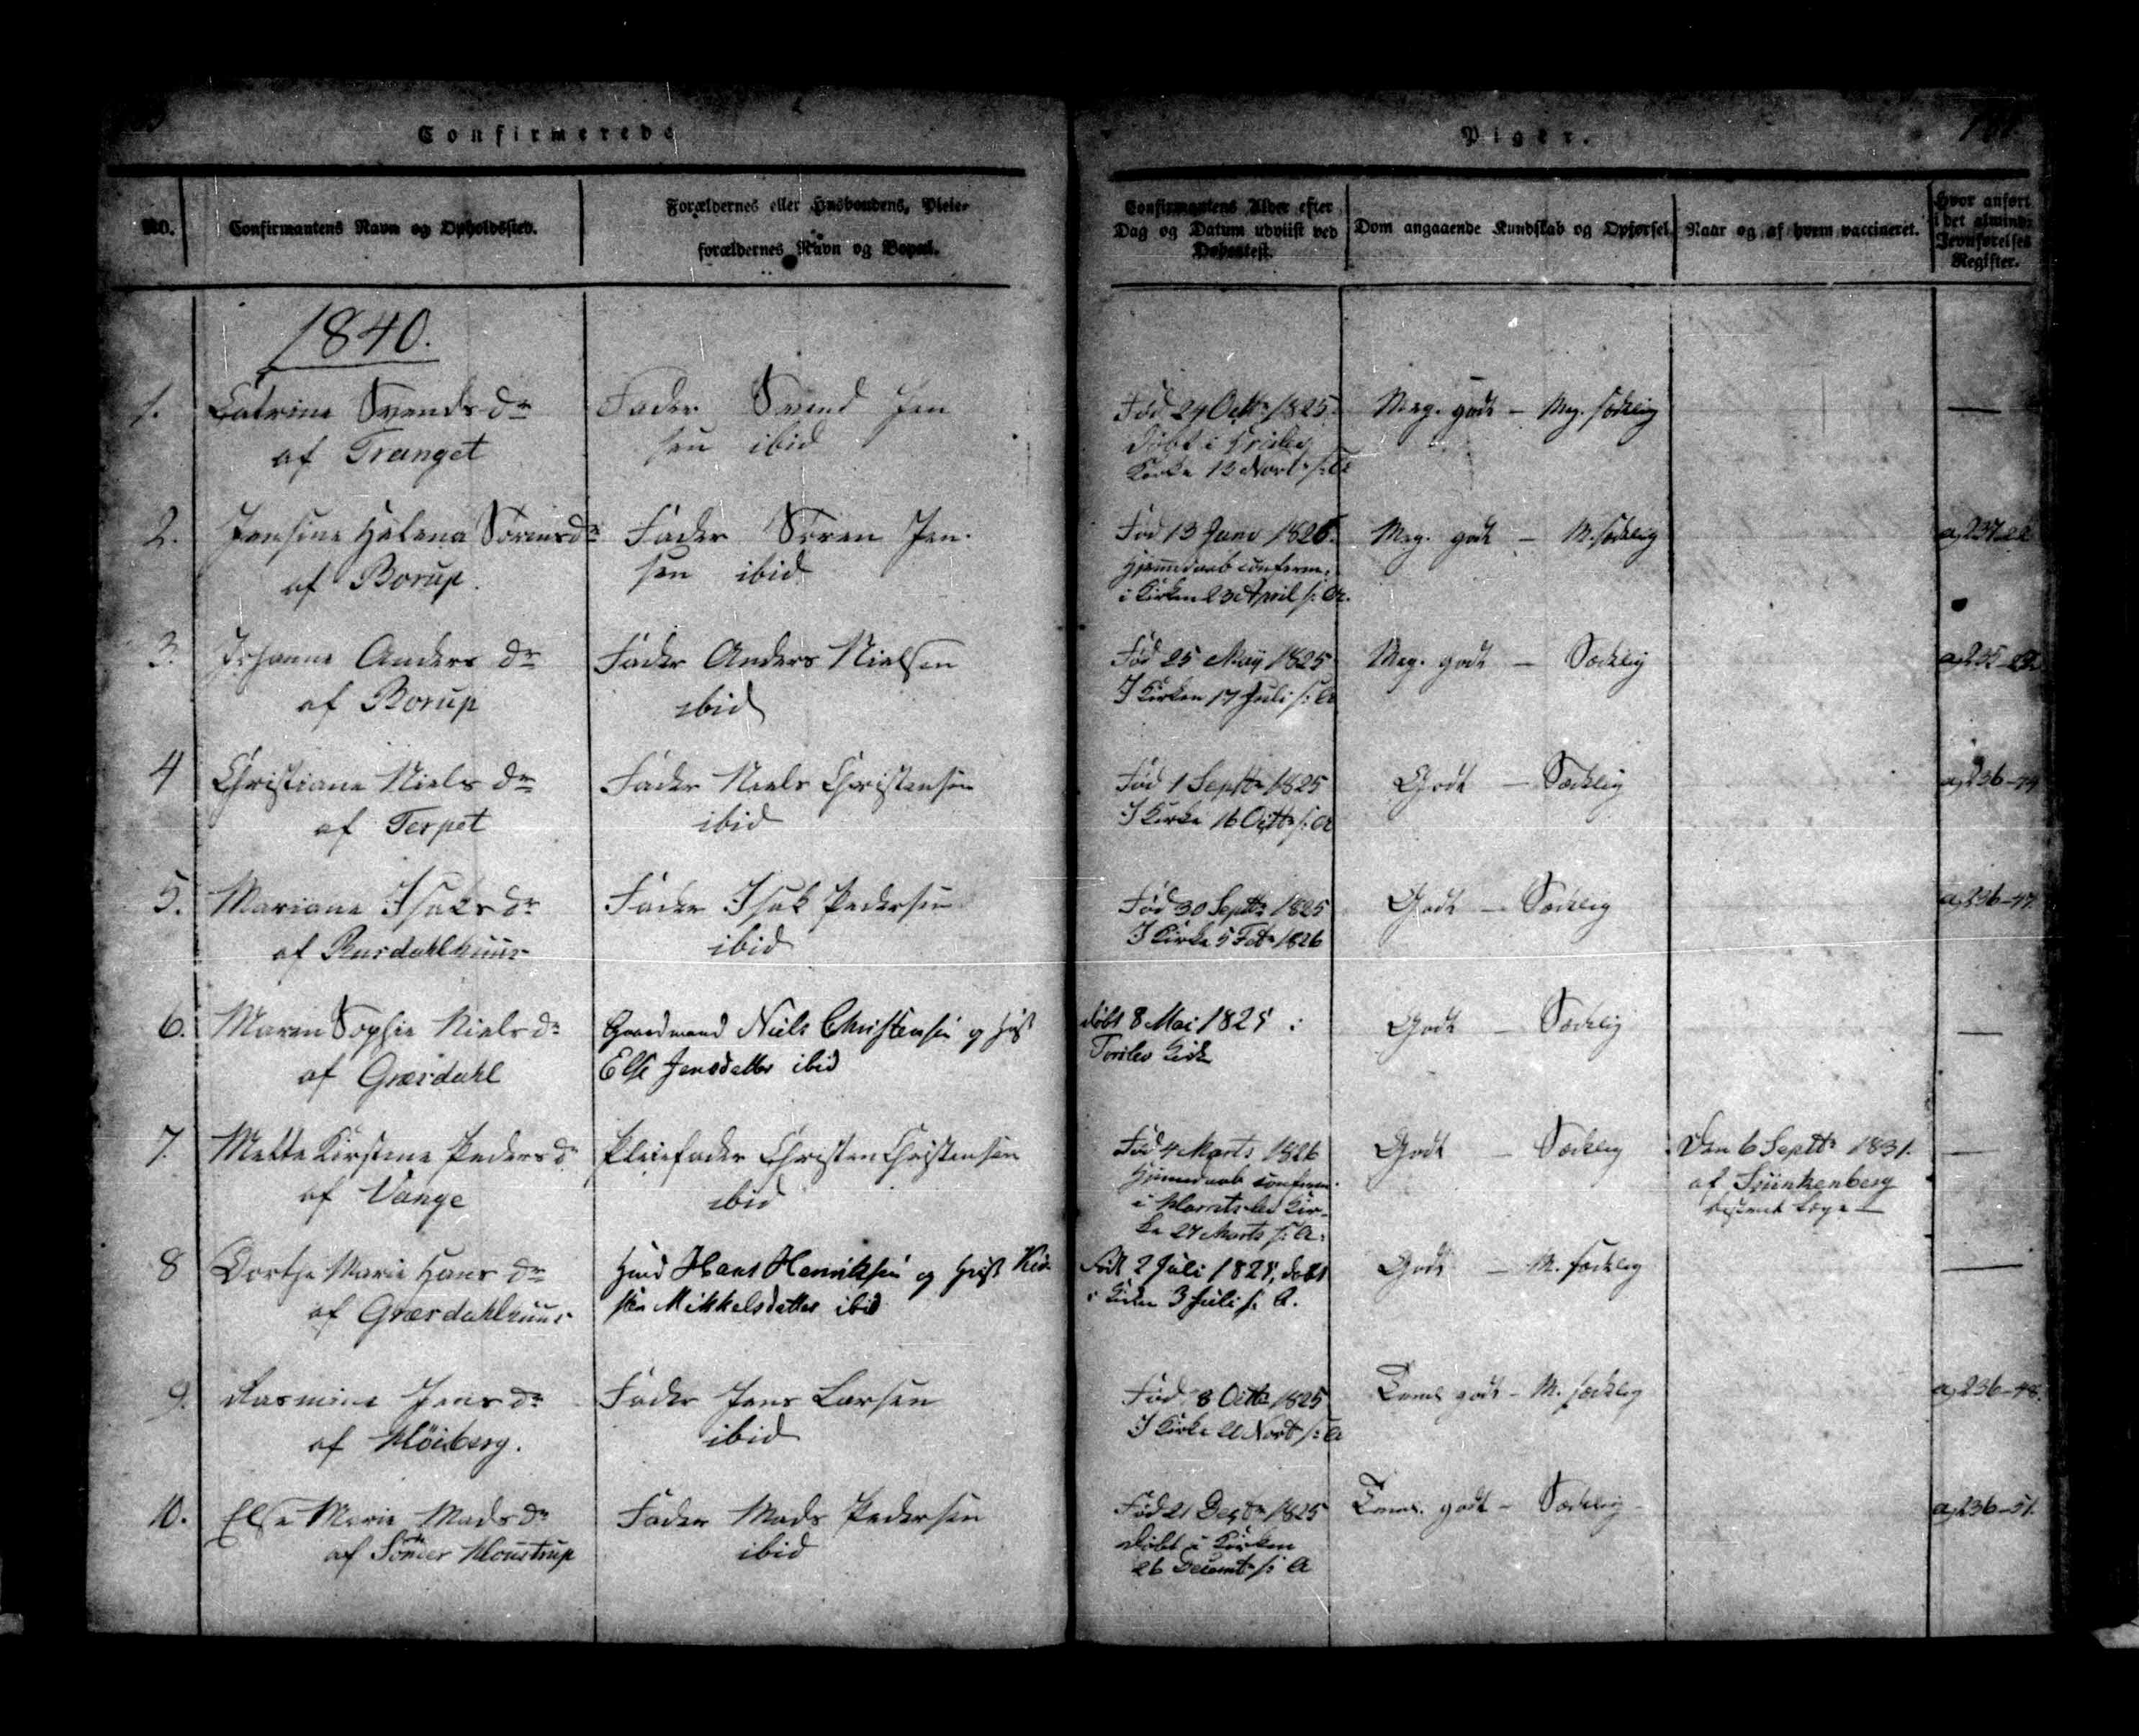 Confirmerede
Piger.
No.
Confirmantens Navn og Opholdssted.
Forældrenes eller Husbondens, Pleie-
forældrenes Navn og Bopæl.
Confirmantens Alder efter
Dag og Datum udviist ved
Døbeattest.
Dom angaaende Kundskab og Opførsel.
Naar og af hvem vaccineret.
Hvor anført
i det almind:
Jevnførelses
Register.
1840.
1. Catrine Svends Dr
af Tranget
Fader Svend Jen
sen ibid
Fød 24 Octbr 1825
døbt i
Kirke 12 Novbr s: A
Meg. godt – Meg. sædelig
—
2. Jensine Helena Sørens Dr
af Borup.
Fader Søren Jen-
sen ibid
Fød 13 Janv 1826.
hjemmedøbt confirm.
i Kirken 23 April s: A.
Meg. godt – M. sædelig
a, 237
3. Johanne Anders Dr
af Borup
Fader Anders Nielsen
ibid
Fød 25 May 1825
I Kirken 17 Juli s: A
Meg. godt – Sædelig
a, 235
4 Christiane Niels Dr
af Terpet
Fader Niels Christensen
ibid
Fød 1 Septbr 1825
I Kirke 16 Octbr s: A
Godt – Sædelig
a, 236
5. Mariane Isaks Dr
af
Fader Isak Pedersen
ibid
Fød 30 Septbr 1825
I Kirke 5 Feb 1826
Godt – Sædelig
a, 236–47.
6. Maren Sophie Niels Dr
af Græsdahl
Gaardmand Niels Christensen og Hust
Else Jensdatter ibid
døbt 8 Mai 1825 i
Torslev Kirke
Godt – Sædelig
—
7. Mette Kirstine Peders Dr
af Vange
Pleiefader Christen Christensen
ibid
Fød 4 Marts 1826
Hjemmedøbt confirm.
i Kir-
ke 27 Marts s: A.
Godt – Sædelig
Den 6 Septbr 1831.
af
—
8 Dorthe Marie Hans Dr
af Græsdahlhuus
Huusmd Hans Henriksen og Hust Kir-
sten Mikkelsdatter ibid
Født 2 Juli 1825, døbt
i Kirken 3 Juli s. A.
Godt – M. sædelig
—
9. Rasmine Jens Dr
af Høiberg.
Fader Jens Larsen
ibid
Fød 8 Octbr 1825
I Kirke Novbr s: A
Teml godt – M. sædelig
a, 236–48.
10. Else Marie Mads Dr
af Sönder
Fader Mads Pedersen
ibid
Fød 21 Decbr 1825
døbt i Kirken
26 Decembr s: A
Teml. godt – Sædelig
a, 236–51.